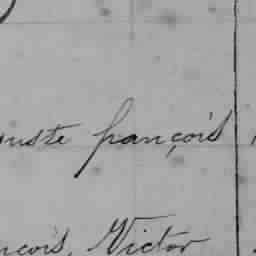 uste françois
nçois, Victor